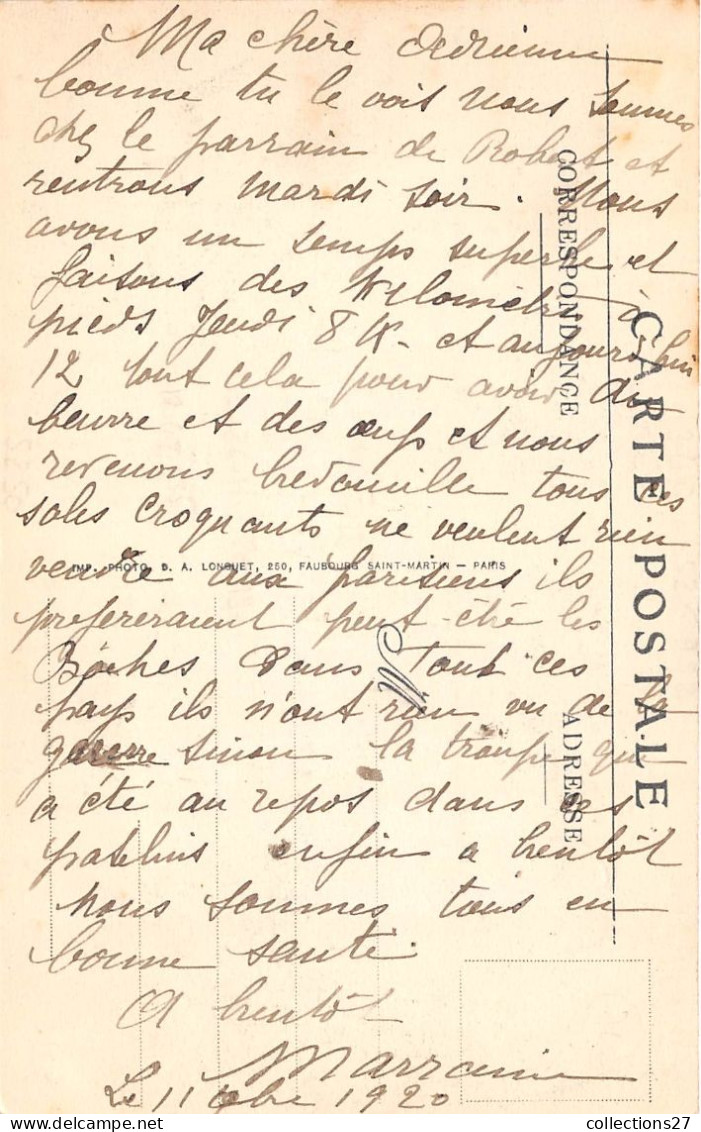 Ma chère Adrienne
comme tu le vois nous sommes
chez le parrain de Robert et
rentrons mardi soir. Nous
avons un temps superbe et
faisons des kilomètres à
pieds Jeudi 8 K. et aujourd'hui
12 tout cela pour avoir du
beurre et des œufs et nous
revenons bredouille tous ces
sales croquants ne veulent rien
vendre aux parisiens ils
prefereraient peut-être les
Boches Dans tout ces
pays ils n'ont rien vu de la
guerre sinon la troupe qui
a été au repos dans ces
patelins enfin a bientôt
Nous sommes tous en
bonne santé.
A bientôt
Marraine
Le 11 1920
CARTE POSTALE
CORRESPONDANCE
ADRESSE
IMP. PHOTO. D. A. LONGUET, 250, FAUBOURG SAINT-MARTIN — PARIS
collections27